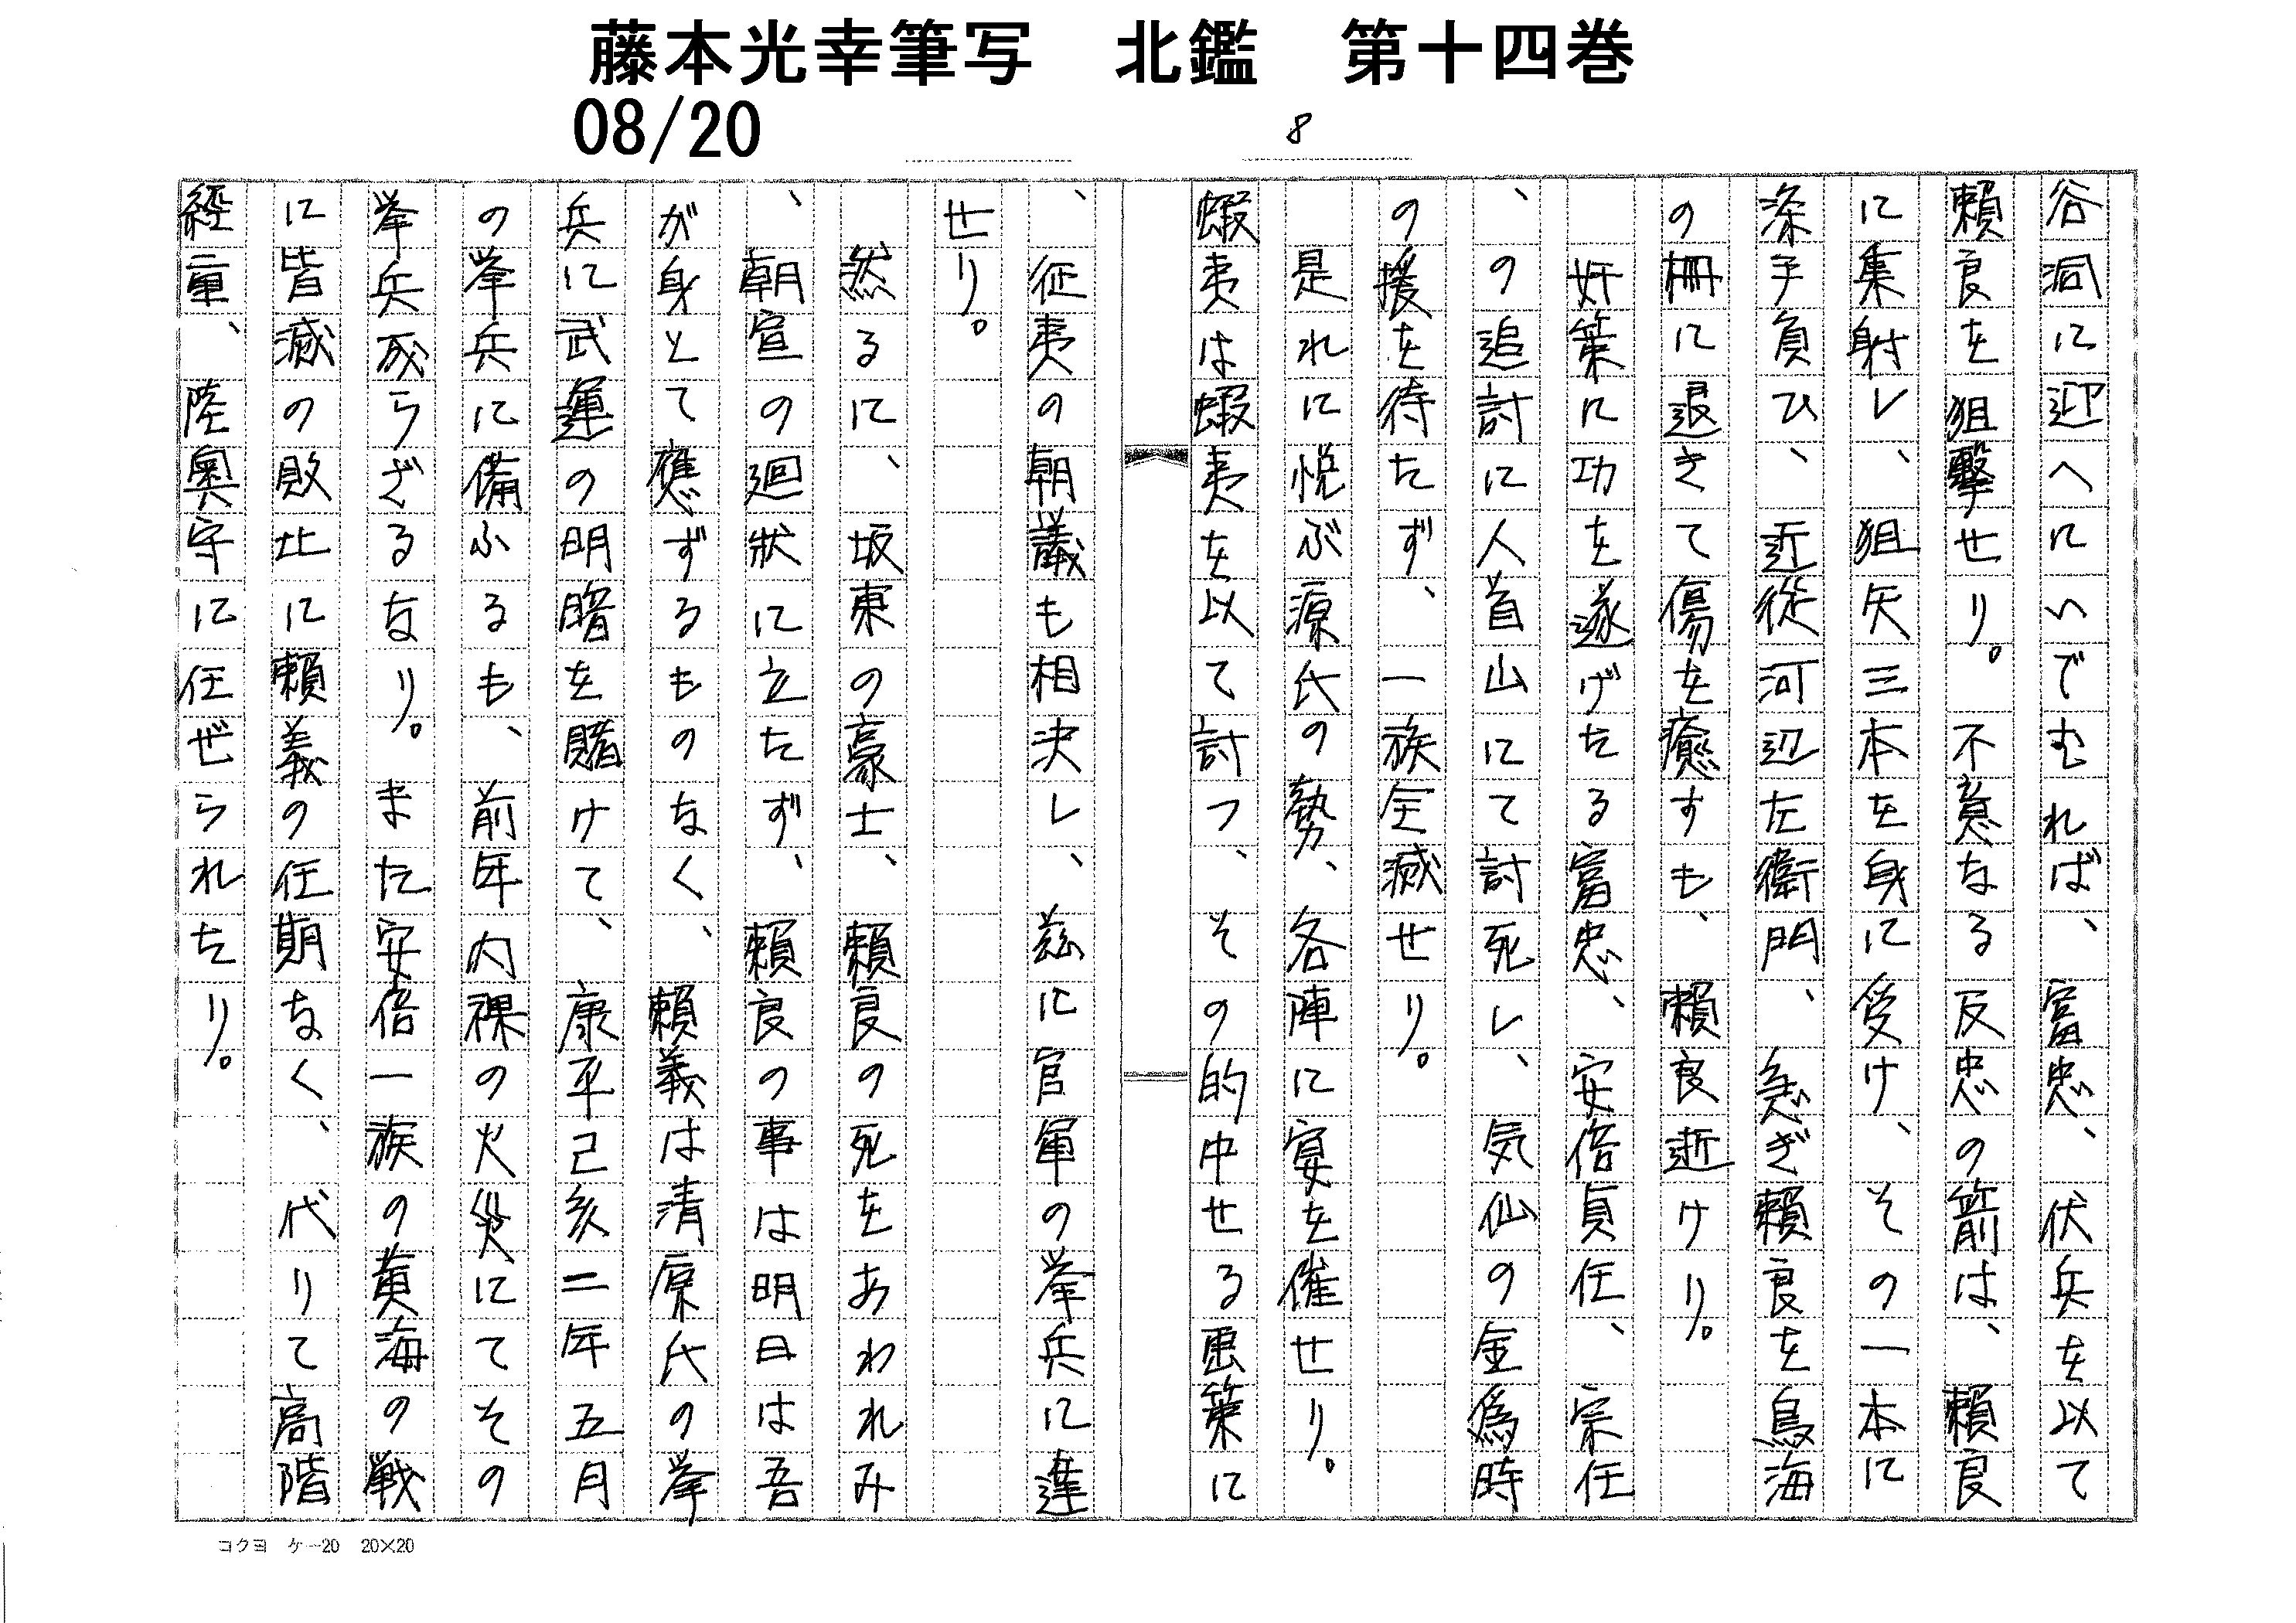 藤本光幸筆写　北鑑　第十四巻
08/20
8
谷洞に迎へにいでむれば、富忠、伏兵を以て
頼良を狙撃せり。不意なる反忠の箭は、頼良
に集射し、狙矢三本を身に受け、その一本に
深手負ひ、近従河辺左衛門、急ぎ頼良を鳥海
の柵に退きて傷を癒すも、頼良逝けり。
奸策に功を遂げたる富忠、安倍貞任、宗任
、の追討に人首山にて討死し、気仙の金為時
の援を待たず、一族全滅せり。
是れに悦ぶ源氏の勢、各陣に宴を催せり。
蝦夷は蝦夷を以て討つ、その的中せる画策に
、征夷の朝議も相決し、茲に官軍の挙兵に達
せり。
然るに、坂東の豪士、頼良の死をあわれみ
、朝宣の廻状に立たず、頼良の事は明日は吾
が身とて應ずるものなく、頼義は清原氏の挙
兵に武運の明暗を賭けて、康平己亥二年五月
の挙兵に備ふるも、前年内裸の火災にてその
挙兵成らざるなり。また安倍一族の黄海の戦
に皆滅の敗北に頼義の任期なく、代りて高階
経重、陸奥守に任ぜられたり。
コクヨ　ケー20　20×20